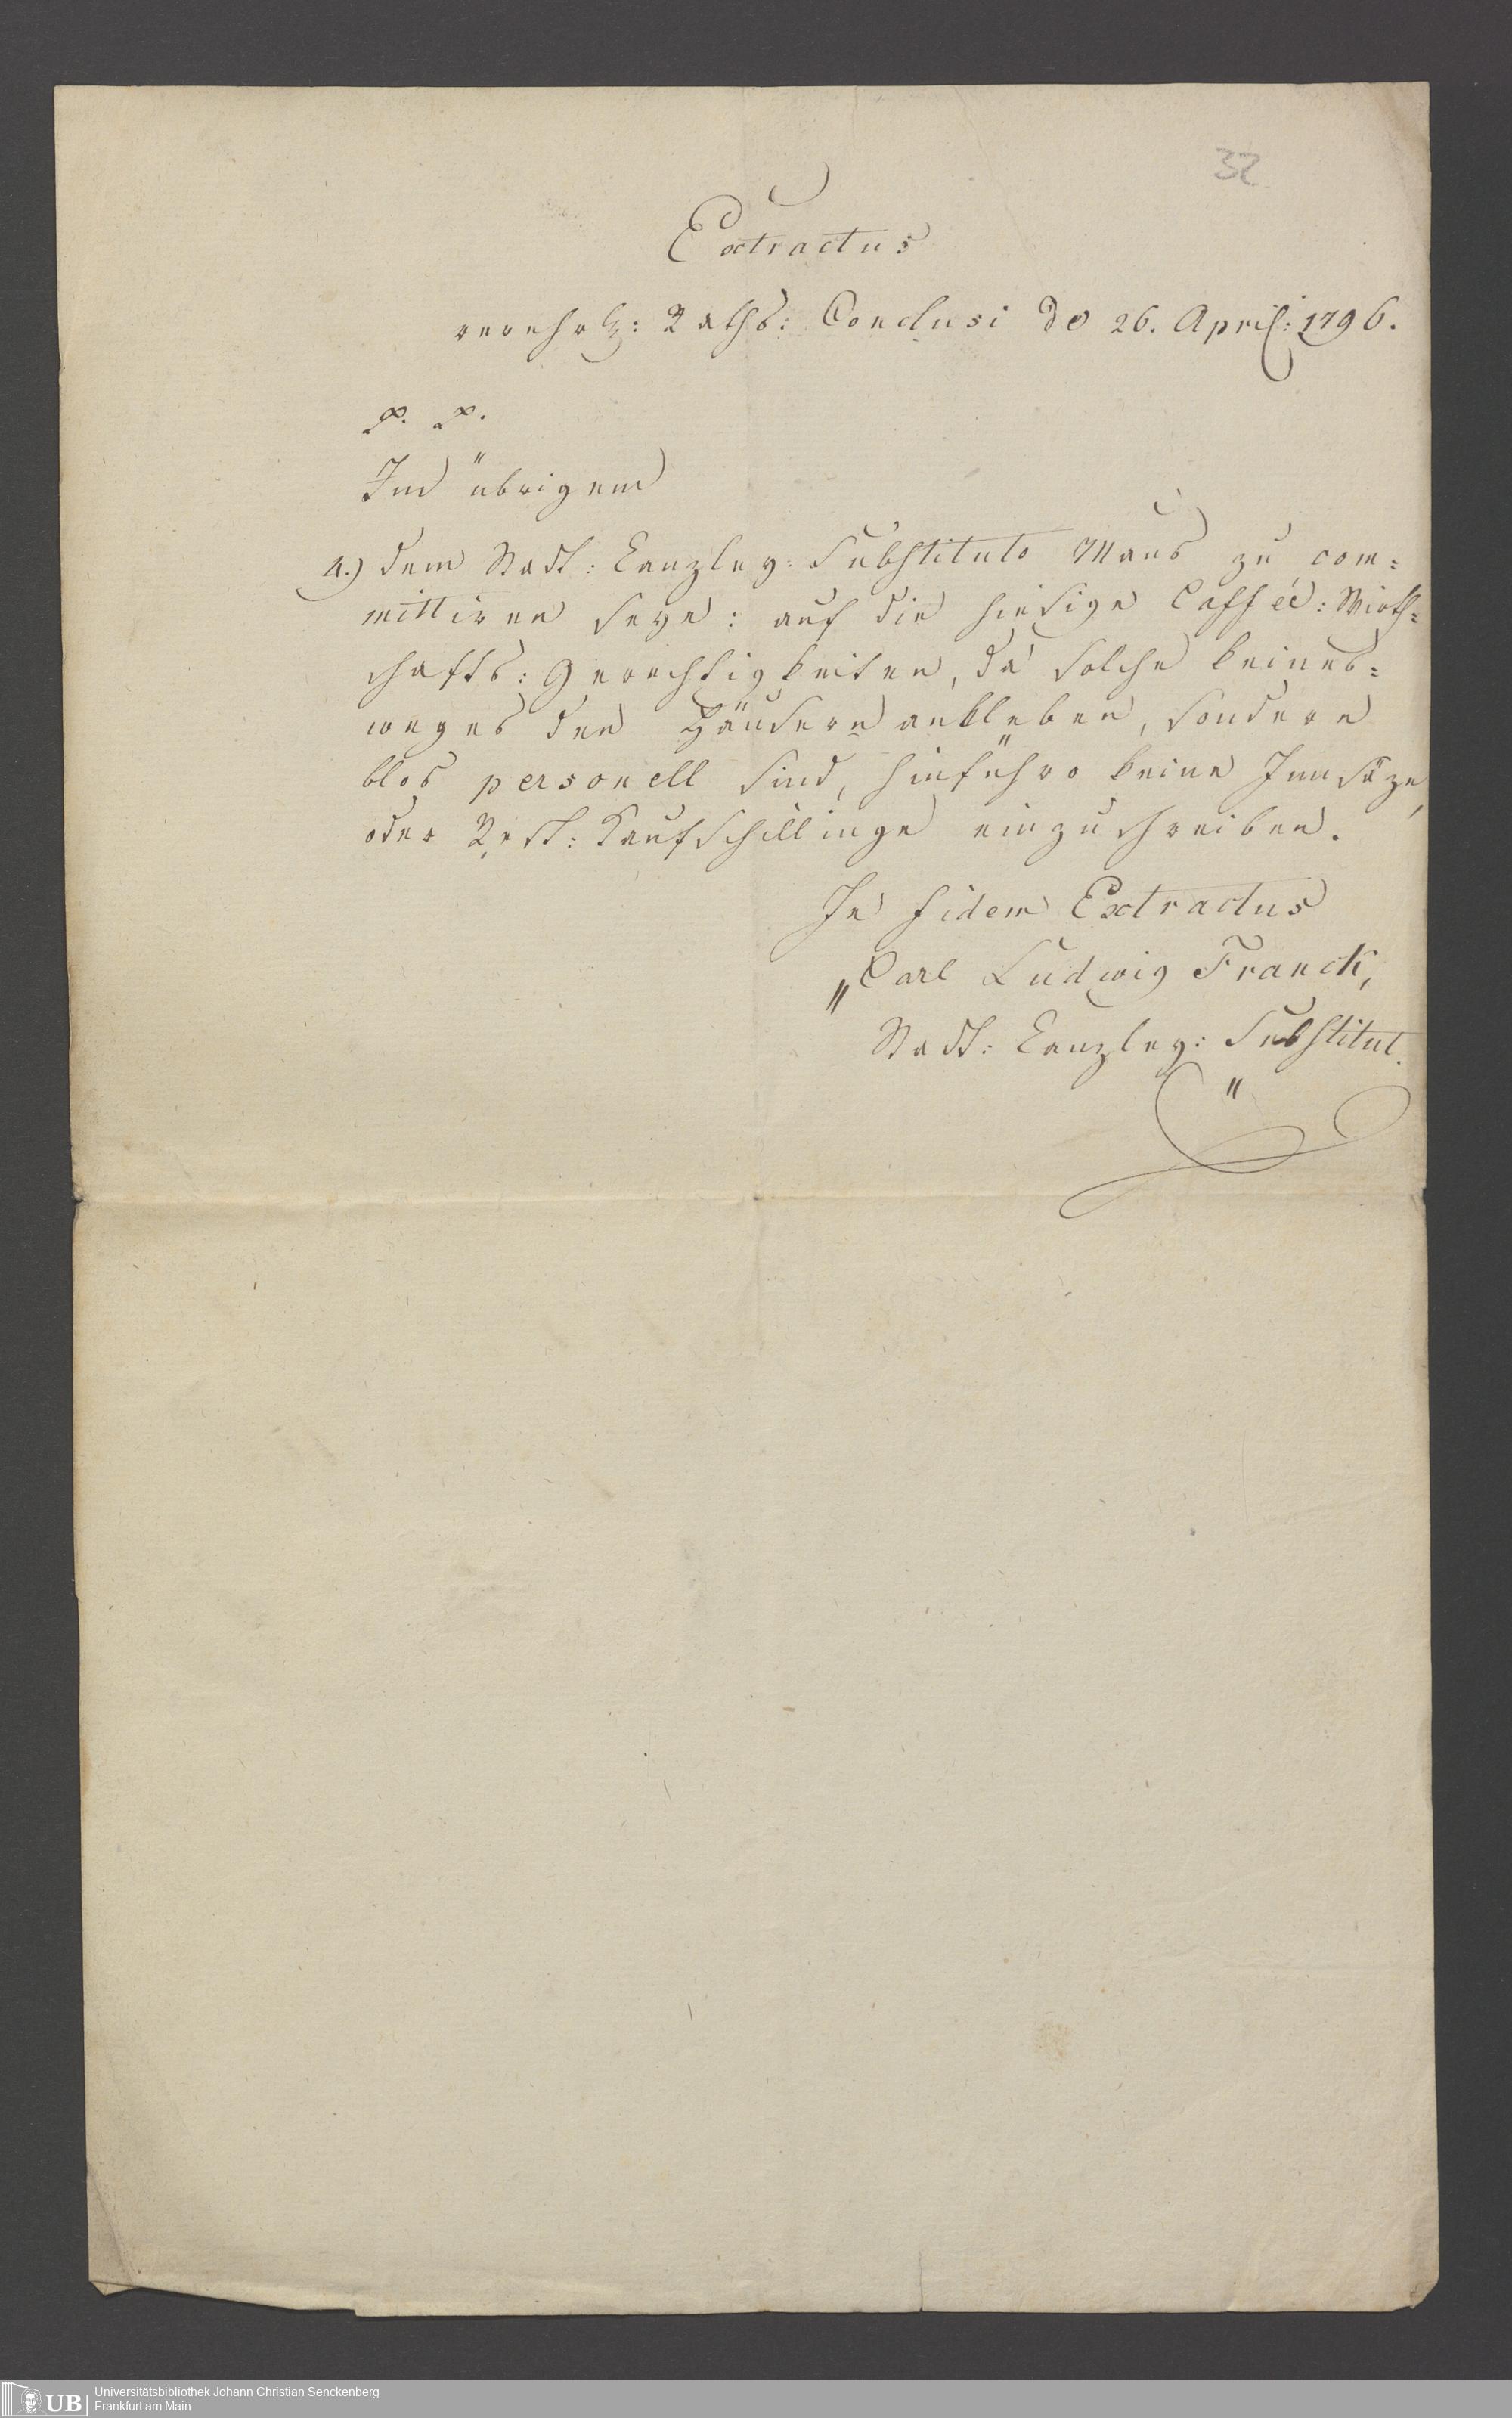 32
Extractus
verehrl: Raths: Conclusi de 26. April: 1796.
p. p.
Im übrigem
4.) dem Stadt: Canzley: Substituto Maus zu com=
mittiren seye: auf die hiesige Caffée: Wirth=
schafts: Gerechtigkeiten, da solche keines=
weges den Häusern ankleben, sondern
blos personell sind, hinführo keine Innsäze,
oder Rest: Kaufschillinge einzuschreiben.
In fidem Extractus
"Carl Ludwig Franck,
Stadt: Canzley: Substitut.
"
UB Universitätsbibliothek Johann Christian Senckenberg
Frankfurt am Main